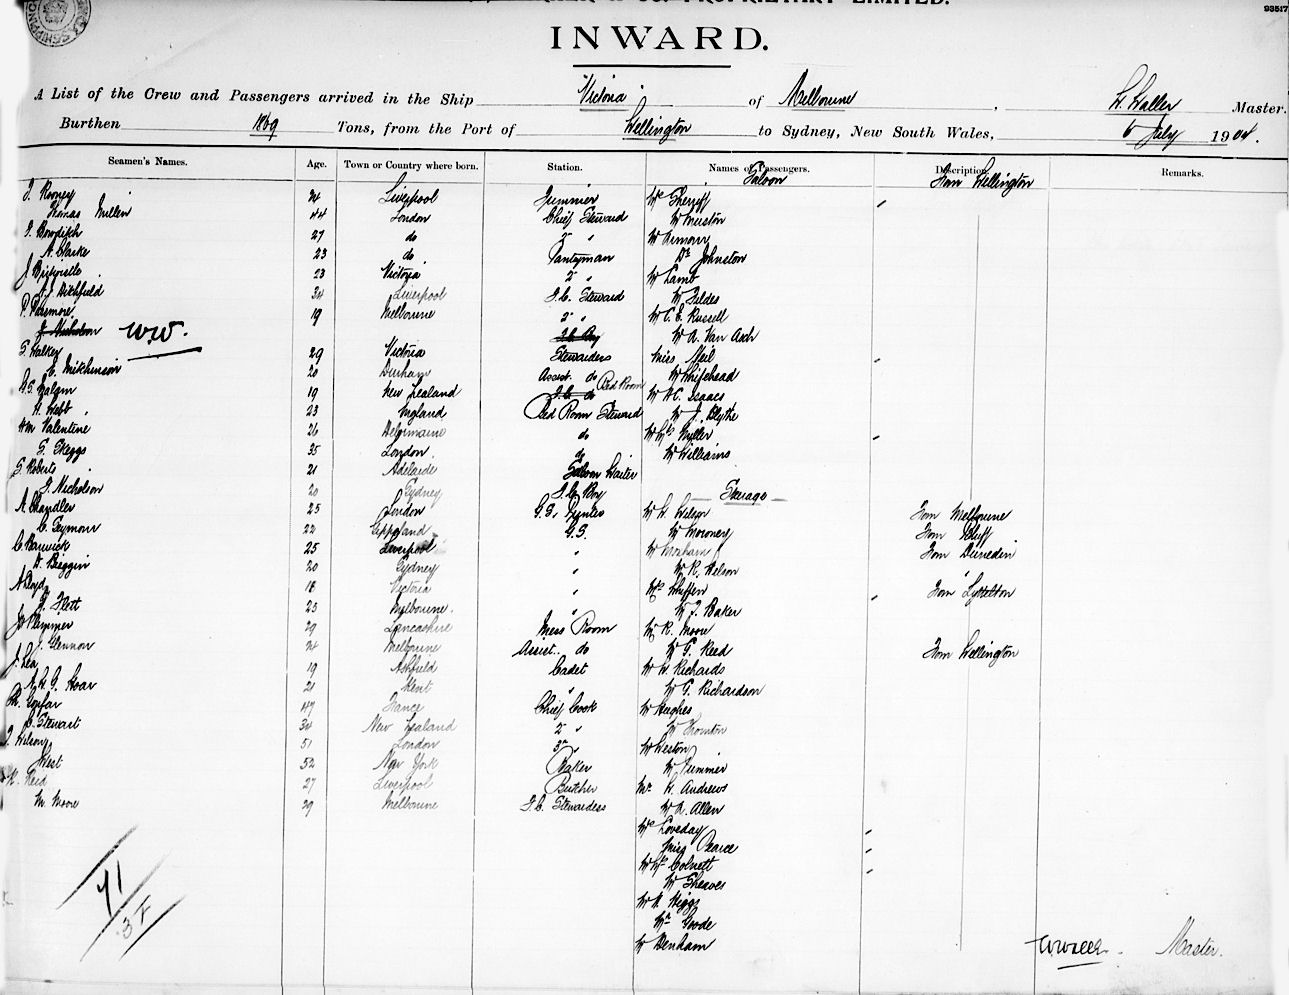 PROPRIETARY LIMITED.
93517
INWARD.
A List of the Crew and Passengers arrived in the Ship Victoria of Melbourne, W. Waller Master.
Burthen 1869 Tons, from the Port of Wellington to Sydney, New South Wales, 6 July 1904.
Seamen's Names. Age. Town or Country where born. Station. Names of Passengers. Description. Remarks.
Saloon From Wellington
J. Rooney 24 Liverpool Trimmer Mrs Sherriff
Thomas Millen 44 London Chief Steward Mr
27 do 2nd " Mr
A. Clarke 23 do Pantryman Dr Johnston
23 Victoria 2 " Mr Lamb
Ditchfield 34 Liverpool F.C. Steward Mr Fildes
P. 19 Melbourne 2 " Mr C. E. Russell
J. Nicholson W.W. F.C. Boy Mr A. Van Asch
S. Walker 29 Victoria Stewardess Miss Neil
C. Mitchinson 20 Durham Assist. do Mr Whitehead
19 New Zealand F.C. do Bed Room Mr H.C. Isaacs
H. Webb 23 England Bed Room Steward Mr J. Blythe
Wm Valentine 26 do Mr Mrs Miller
G. Skeggs 35 London do Mr Williams
S. Roberts 21 Adelaide Saloon Waiter
J. Nicholson 20 Sydney F.C. Boy Steerage
A. Chandler 25 London G.S. Mr W. Wilson From Melbourne
C. Seymour 22 Gippsland G.S. Mr Mowney From Bluff
C. Barwick 25 Liverpool " Mr From Dunedin
D. Biggin 20 Sydney " Mr R. Nelson "
A. Lloyd 18 Victoria " Mrs Whiffen From Lyttelton
Flett 23 Melbourne. " Mr J. Baker
Plemmer 29 Lancashire Mess Room Mr R. Moore
J. Glennon 24 Melbourne Assist. do Mr G. Reed From Wellington
J. Lea 19 Ashfield Cadet Mr W. Richards
A. H. G. Hoar 21 Kent " Mr G. Richardson
47 France Chief Cook Mr Hughes
C. Stewart 34 New Zealand 2 " Mr Thornton
J. Wilson 51 London 3rd " Mr Weston
West 52 New York Baker Mr
Reid 27 Liverpool Butcher Mr H. Andrews
M. Moore 29 Melbourne F.C. Stewardess Mr A. Allen
Mrs Loveday
Miss Pearce
Mr Mrs Colnett
Mr Sheaves
71 Mr H. Higgs
Mr Goode
Mr Denham
W Waller. Master.